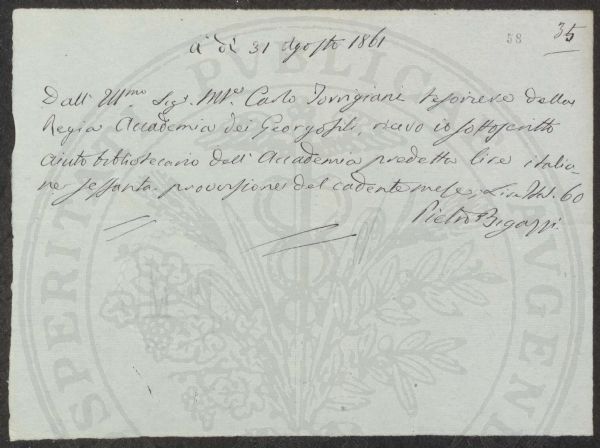 58
35
A dì 31 Agosto 1861
Dall' Ill.mo Sig.r M.se Carlo Torrigiani tesoriere della
Regia Accademia dei Georgofili, ricevo io sottoscritto
aiuto bibliotecario dell' Accademia predetta lire italia-
ne sessanta provvisione del cadente mese, Lire Ital. 60
Pietro Bigazzi
PUBLICAE
PROSPERITATI AUGENDAE